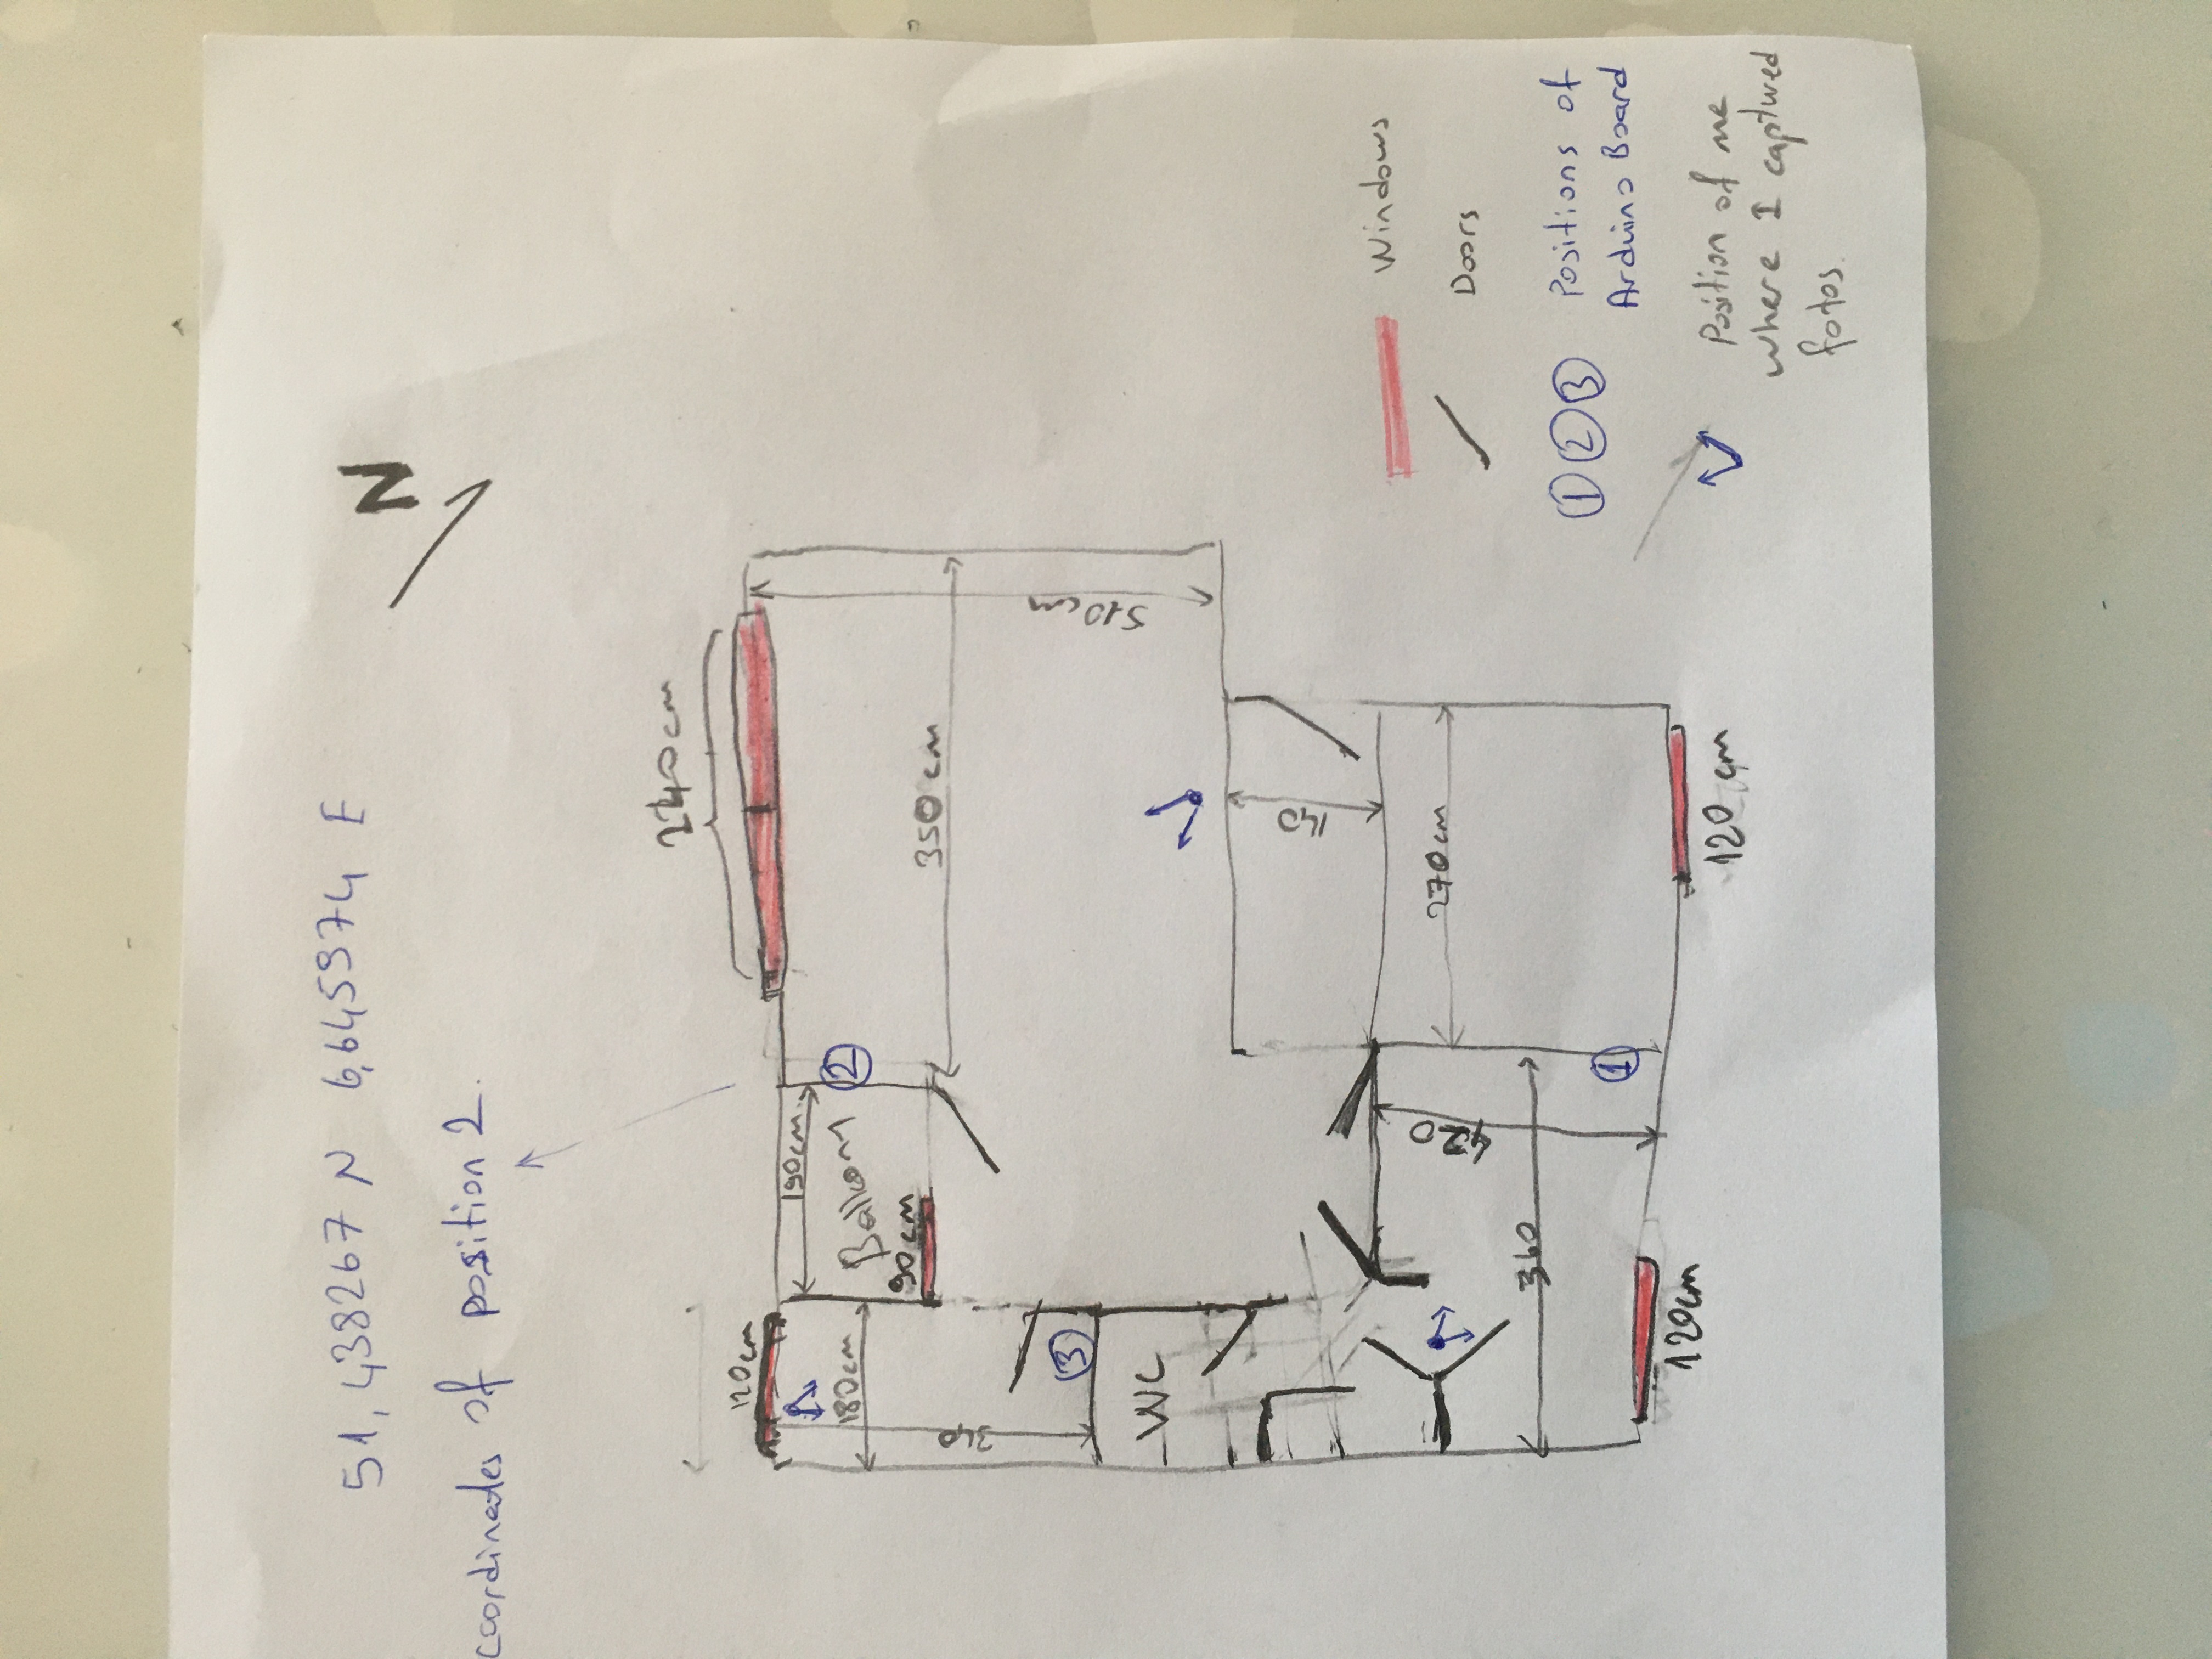 51,438267 N 6,645974 E
N
coordinates of position 2.
240cm
120cm
190cm
180cm
Balkony
2
90cm
350cm
340
3
510cm
WC
140
420
270cm
360
1
120cm
120 cm
Windows
Doors
1 2 3 Positions of
Arduino Board
Position of me
where I captured
fotos.